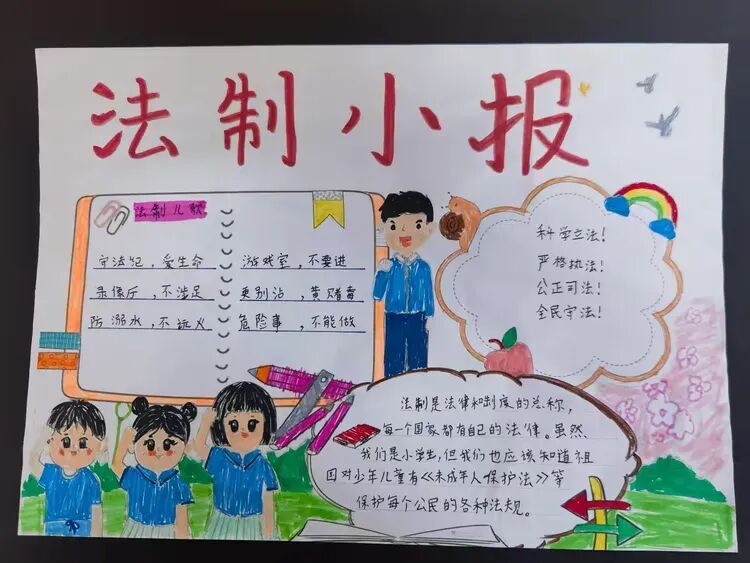 法制小报
法制儿歌
守法纪，爱生命
录像厅，不涉足
防溺水，不玩火
游戏室，不要进
更别沾，黄赌毒
危险事，不能做
科学立法！
严格执法！
公正司法！
全民守法！
法制是法律和制度的总称，
每一个国家都有自己的法律。虽然
我们是小学生，但我们也应该知道祖
国对少年儿童有《未成年人保护法》等
保护每个公民的各种法规。